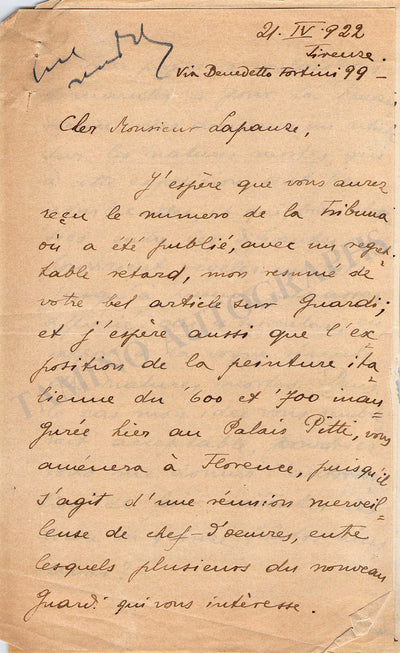 21. IV. 922
Firenze.
Via Benedetto Fortini 99 –
Cher Monsieur Lapauze,
J'espère que vous aurez
reçu le numero de la Tribuna
où a été publié, avec un regret-
table rétard, mon resumé de
votre bel article sur Guardi;
et j'espère aussi que l'ex-
position de la peinture ita-
lienne du '600 et '700 inau-
gurée hier au Palais Pitti, vous
aménera à Florence, puisqu'il
s'agit d'une réunion merveil-
leuse de chef-d'oeuvres, entre
lesquels plusieurs du nouveau
Guardi qui vous intèresse.
TAMINO AUTOGRAPHS